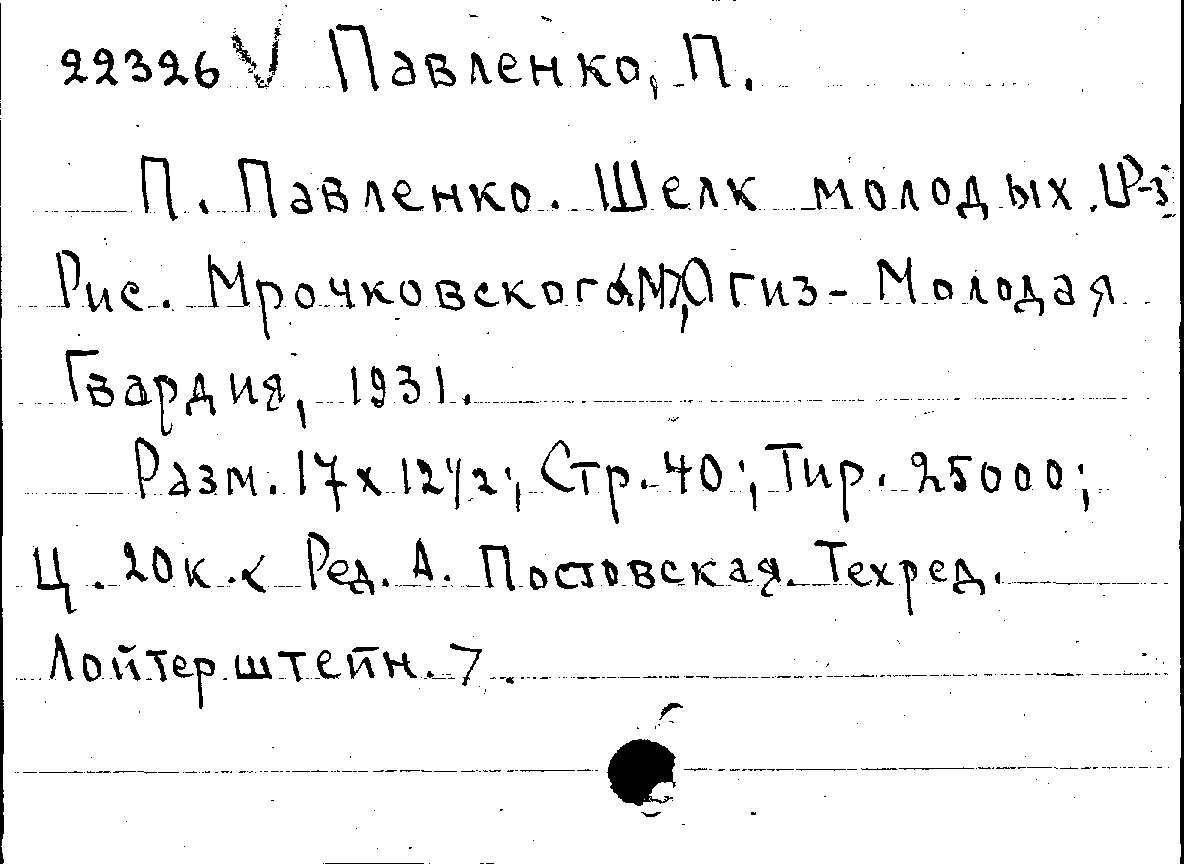 22326 V Павленко, П.
П. Павленко. Шелк молодых.
Рис. Мрочковского М, Огиз-Молодая
Гвардия, 1931.
Разм. 17х12 1/2; Стр. 40; Тир. 25000;
Ц. 20к. < Ред. А. Постовская. Техред.
Лойтерштейн. >.